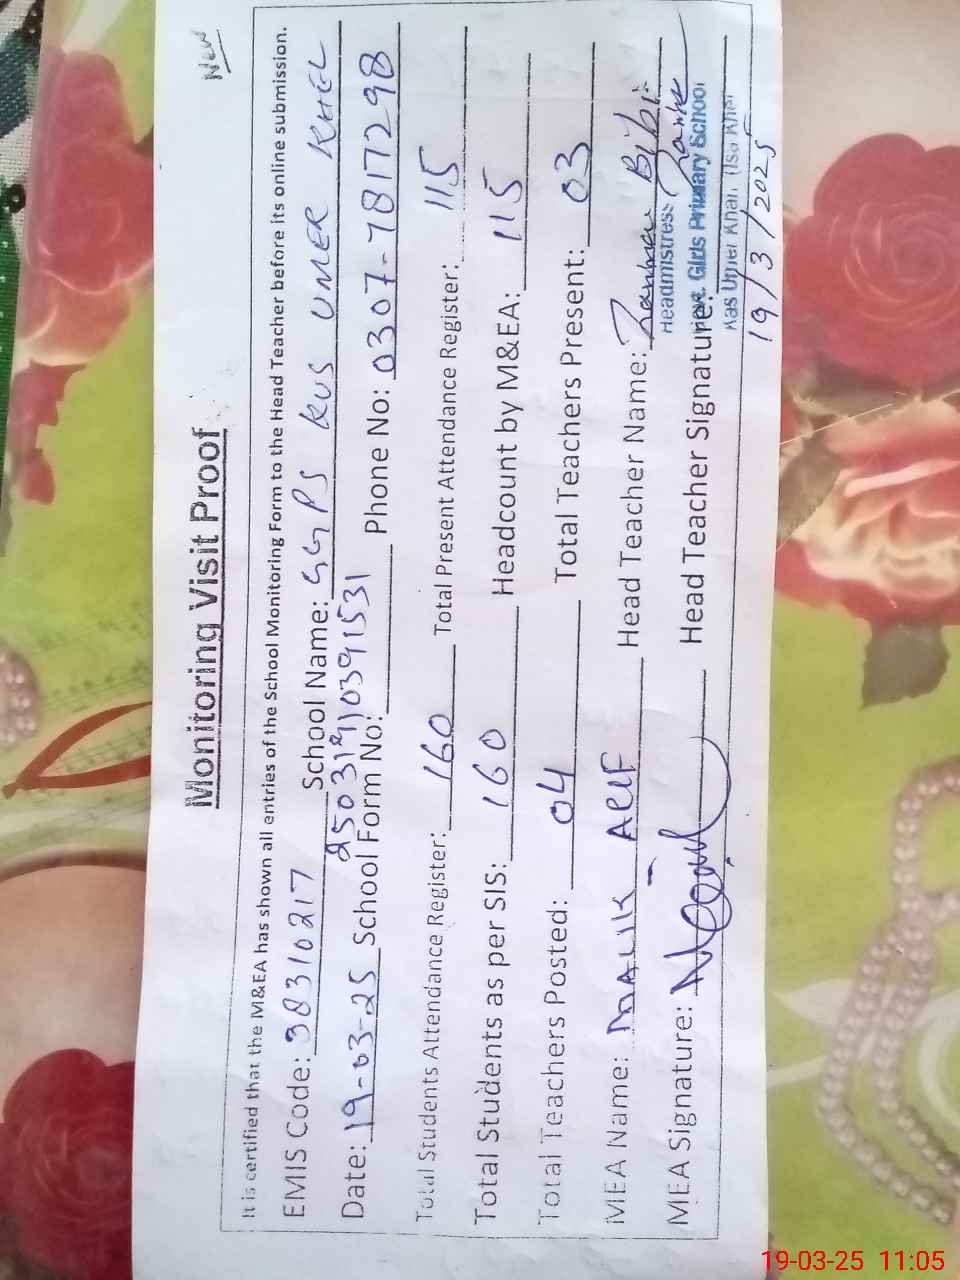 New
Monitoring Visit Proof
It is certified that the M&EA has shown all entries of the School Monitoring Form to the Head Teacher before its online submission.
EMIS Code: 38310217 School Name: GGPS KUS UMER KHEL
Date: 19-03-25 School Form No: Phone No: 0307-7817298
Total Students Attendance Register: 160 Total Present Attendance Register: 115
Total Students as per SIS: 160 Headcount by M&EA: 115
Total Teachers Posted: 04 Total Teachers Present: 03
MEA Name: MALIK ARIF Head Teacher Name: Bibi
Headmistress
MEA Signature: Head Teacher Signature:
Govt. Girls Primary School
Kas Umer Khan Isa Khel
19/3/2025
19-03-25 11:05